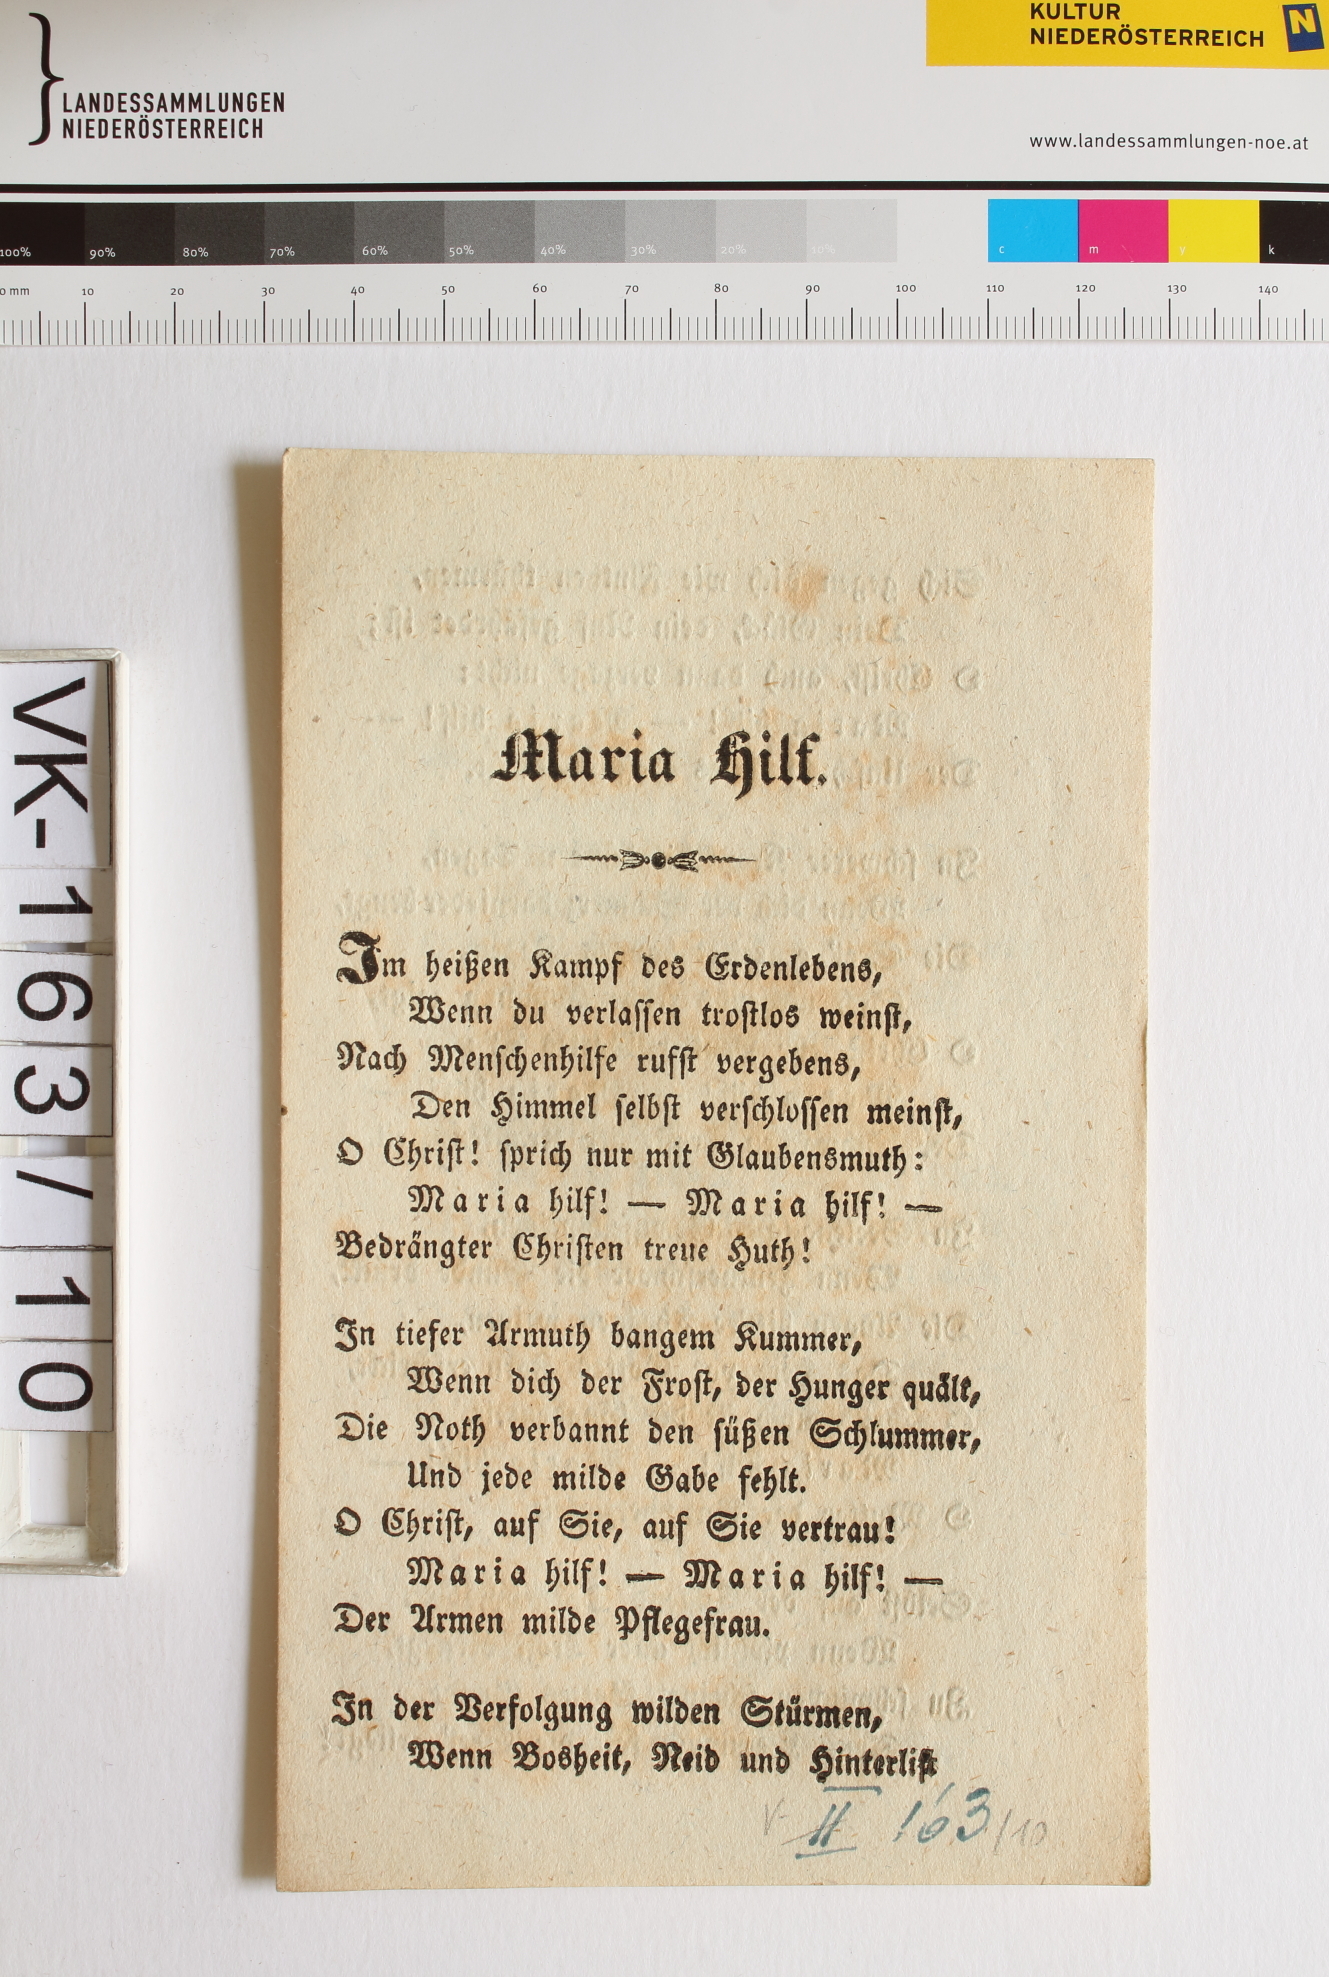 LANDESSAMMLUNGEN
NIEDERÖSTERREICH
KULTUR
NIEDERÖSTERREICH
N
www.landessammlungen-noe.at
100% 90% 80% 70% 60% 50% 40% 30% 20% 10% c m y k
0 mm 10 20 30 40 50 60 70 80 90 100 110 120 130 140
VK-163/10
Maria Hilf.
Im heißen Kampf des Erdenlebens,
Wenn du verlassen trostlos weinst,
Nach Menschenhilfe rufst vergebens,
Den Himmel selbst verschlossen meinst,
O Christ! sprich nur mit Glaubensmuth:
Maria hilf! — Maria hilf! —
Bedrängter Christen treue Huth!
In tiefer Armuth bangem Kummer,
Wenn dich der Frost, der Hunger quält,
Die Noth verbannt den süßen Schlummer,
Und jede milde Gabe fehlt.
O Christ, auf Sie, auf Sie vertrau!
Maria hilf! — Maria hilf! —
Der Armen milde Pflegefrau.
In der Verfolgung wilden Stürmen,
Wenn Bosheit, Neid und Hinterlist
V- II 163/10